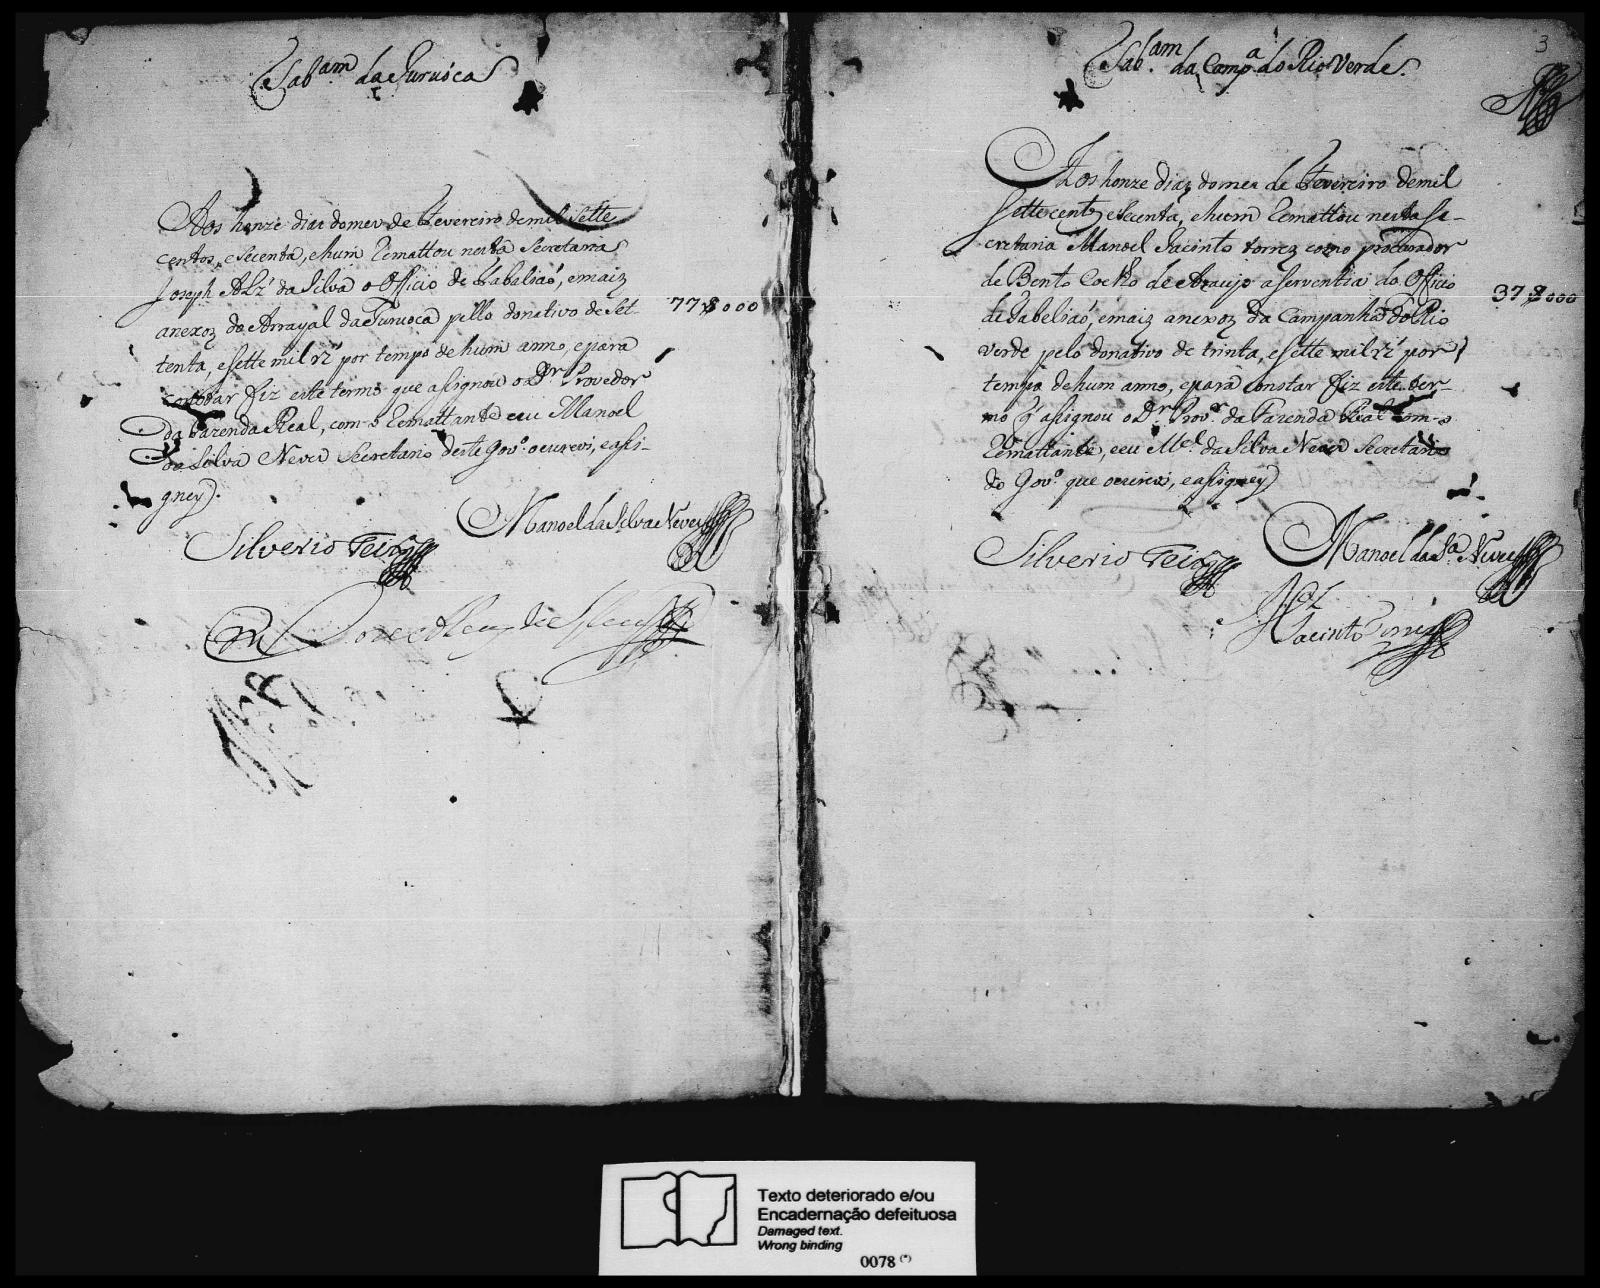 Tab.am da Juruóca
Aos honze dias do mes de Fevereiro de mil sette
centos, e secenta, e hum Rematou nesta Secretaria
Joseph Alz' da Silva o Officio de Tabaliaó, e maiz
anexoz do Arrayal da Juruoca pello donativo de Set-
77$000
tenta, e sette mil rz' por tempo de hum anno, e para
constar fiz este termo que asignou o Dr. Provedor
da Fazenda Real, com o Remattante e eu Manoel
da Silva Neves Secretario deste Gov.o o escrevi, e asi-
gney.
Manoel da Silva Neves
Silverio Teix.a
Tab.am da Camp.a do Rio Verde.
3
Aos honze diaz do mes de Fevereiro de mil
settecentz e secenta, e hum Remattou nesta Se-
cretaria Manoel Jacinto torrez como procurador
de Bento Coelho de Araujo a serventia do Officio
37$000
de Tabeliaó, e maiz anexoz da Campanha do Rio
verde pelo donativo de trinta, e sette mil rz' por
tempo de hum anno, e para constar fiz este ter-
mo q' asignou o Dr. Prov.or da Fazenda Real com o
Remattante, e eu M.el da Silva Neves Secretario
do Gov.o que o escrevi, e asigney
Manoel da S.a Neves
Silverio Teix.a
M.el
Jacinto Torres
Texto deteriorado e/ou
Encadernação defeituosa
Damaged text.
Wrong binding
0078 (*)